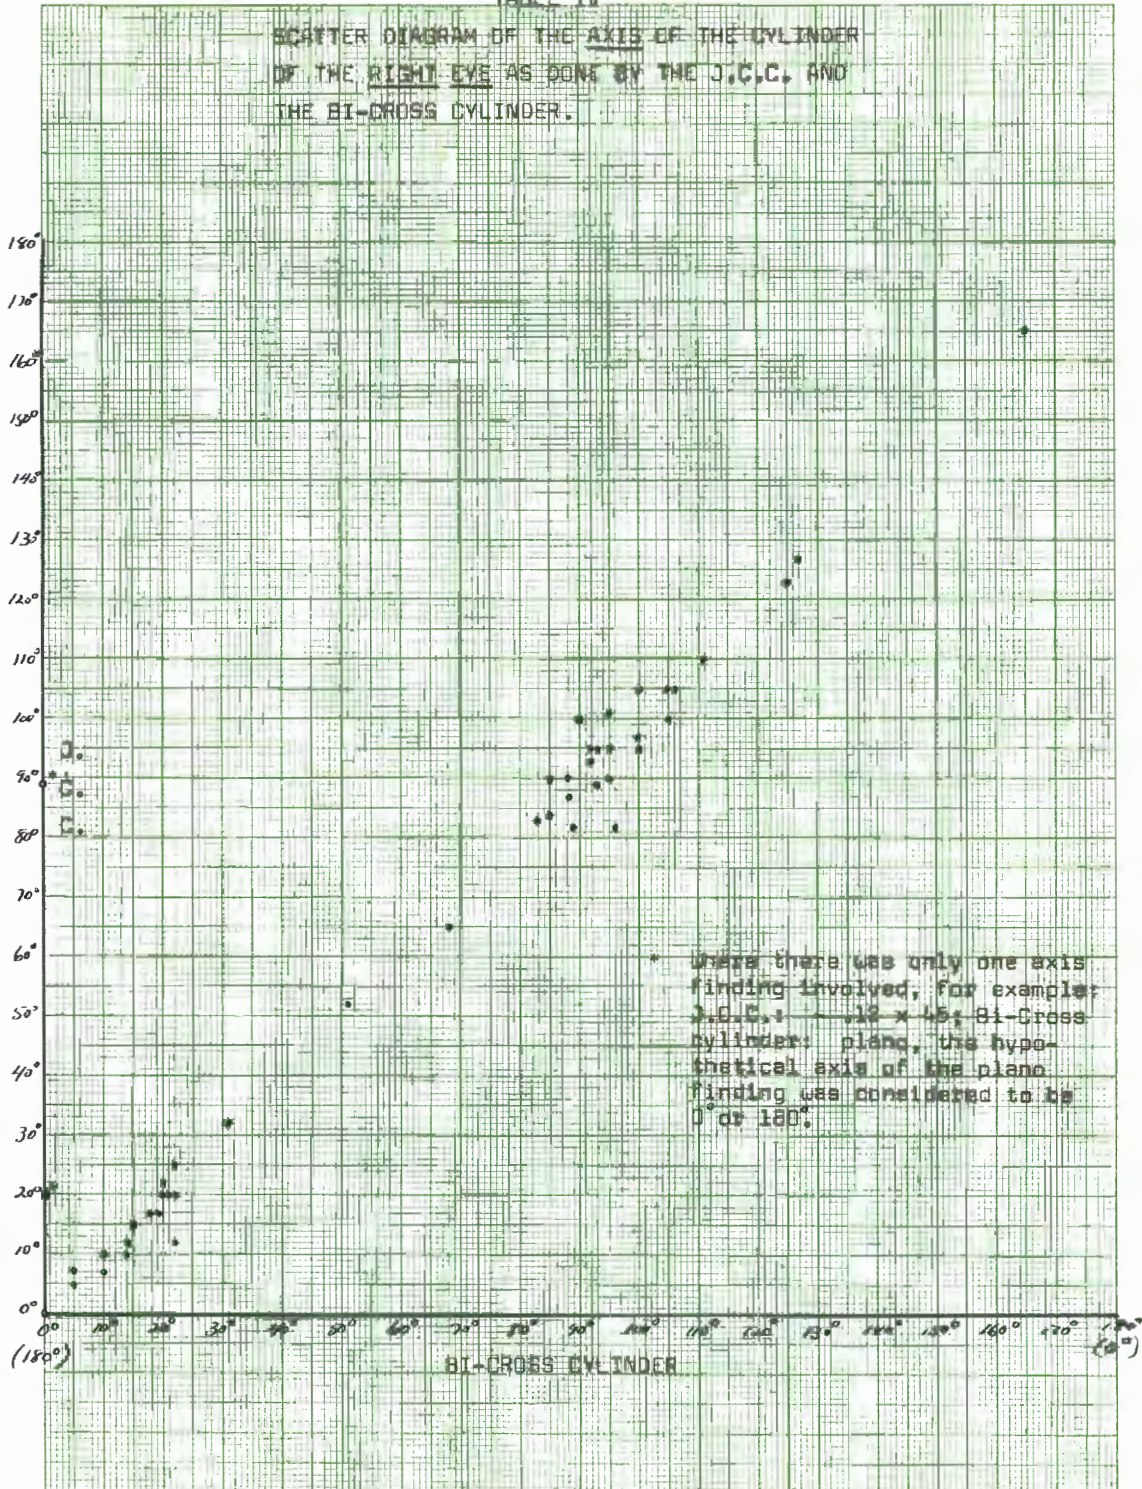 SCATTER DIAGRAM OF THE AXIS OF THE CYLINDER
OF THE RIGHT EYE AS DONE BY THE J.C.C. AND
THE BI-CROSS CYLINDER.
180°
170°
160°
150°
140°
130°
120°
110°
100°
90°
80°
70°
60°
50°
40°
30°
20°
10°
0°
J.
C.
C.
*
*
* Where there was only one axis
finding involved, for example:
J.C.C.: -.12 x 45; Bi-Cross
cylinder: plano, the hypo-
thetical axis of the plano
finding was considered to be
0° or 180°.
0° 10° 20° 30° 40° 50° 60° 70° 80° 90° 100° 110° 120° 130° 140° 150° 160° 170° 180°
(180°) (0°)
BI-CROSS CYLINDER